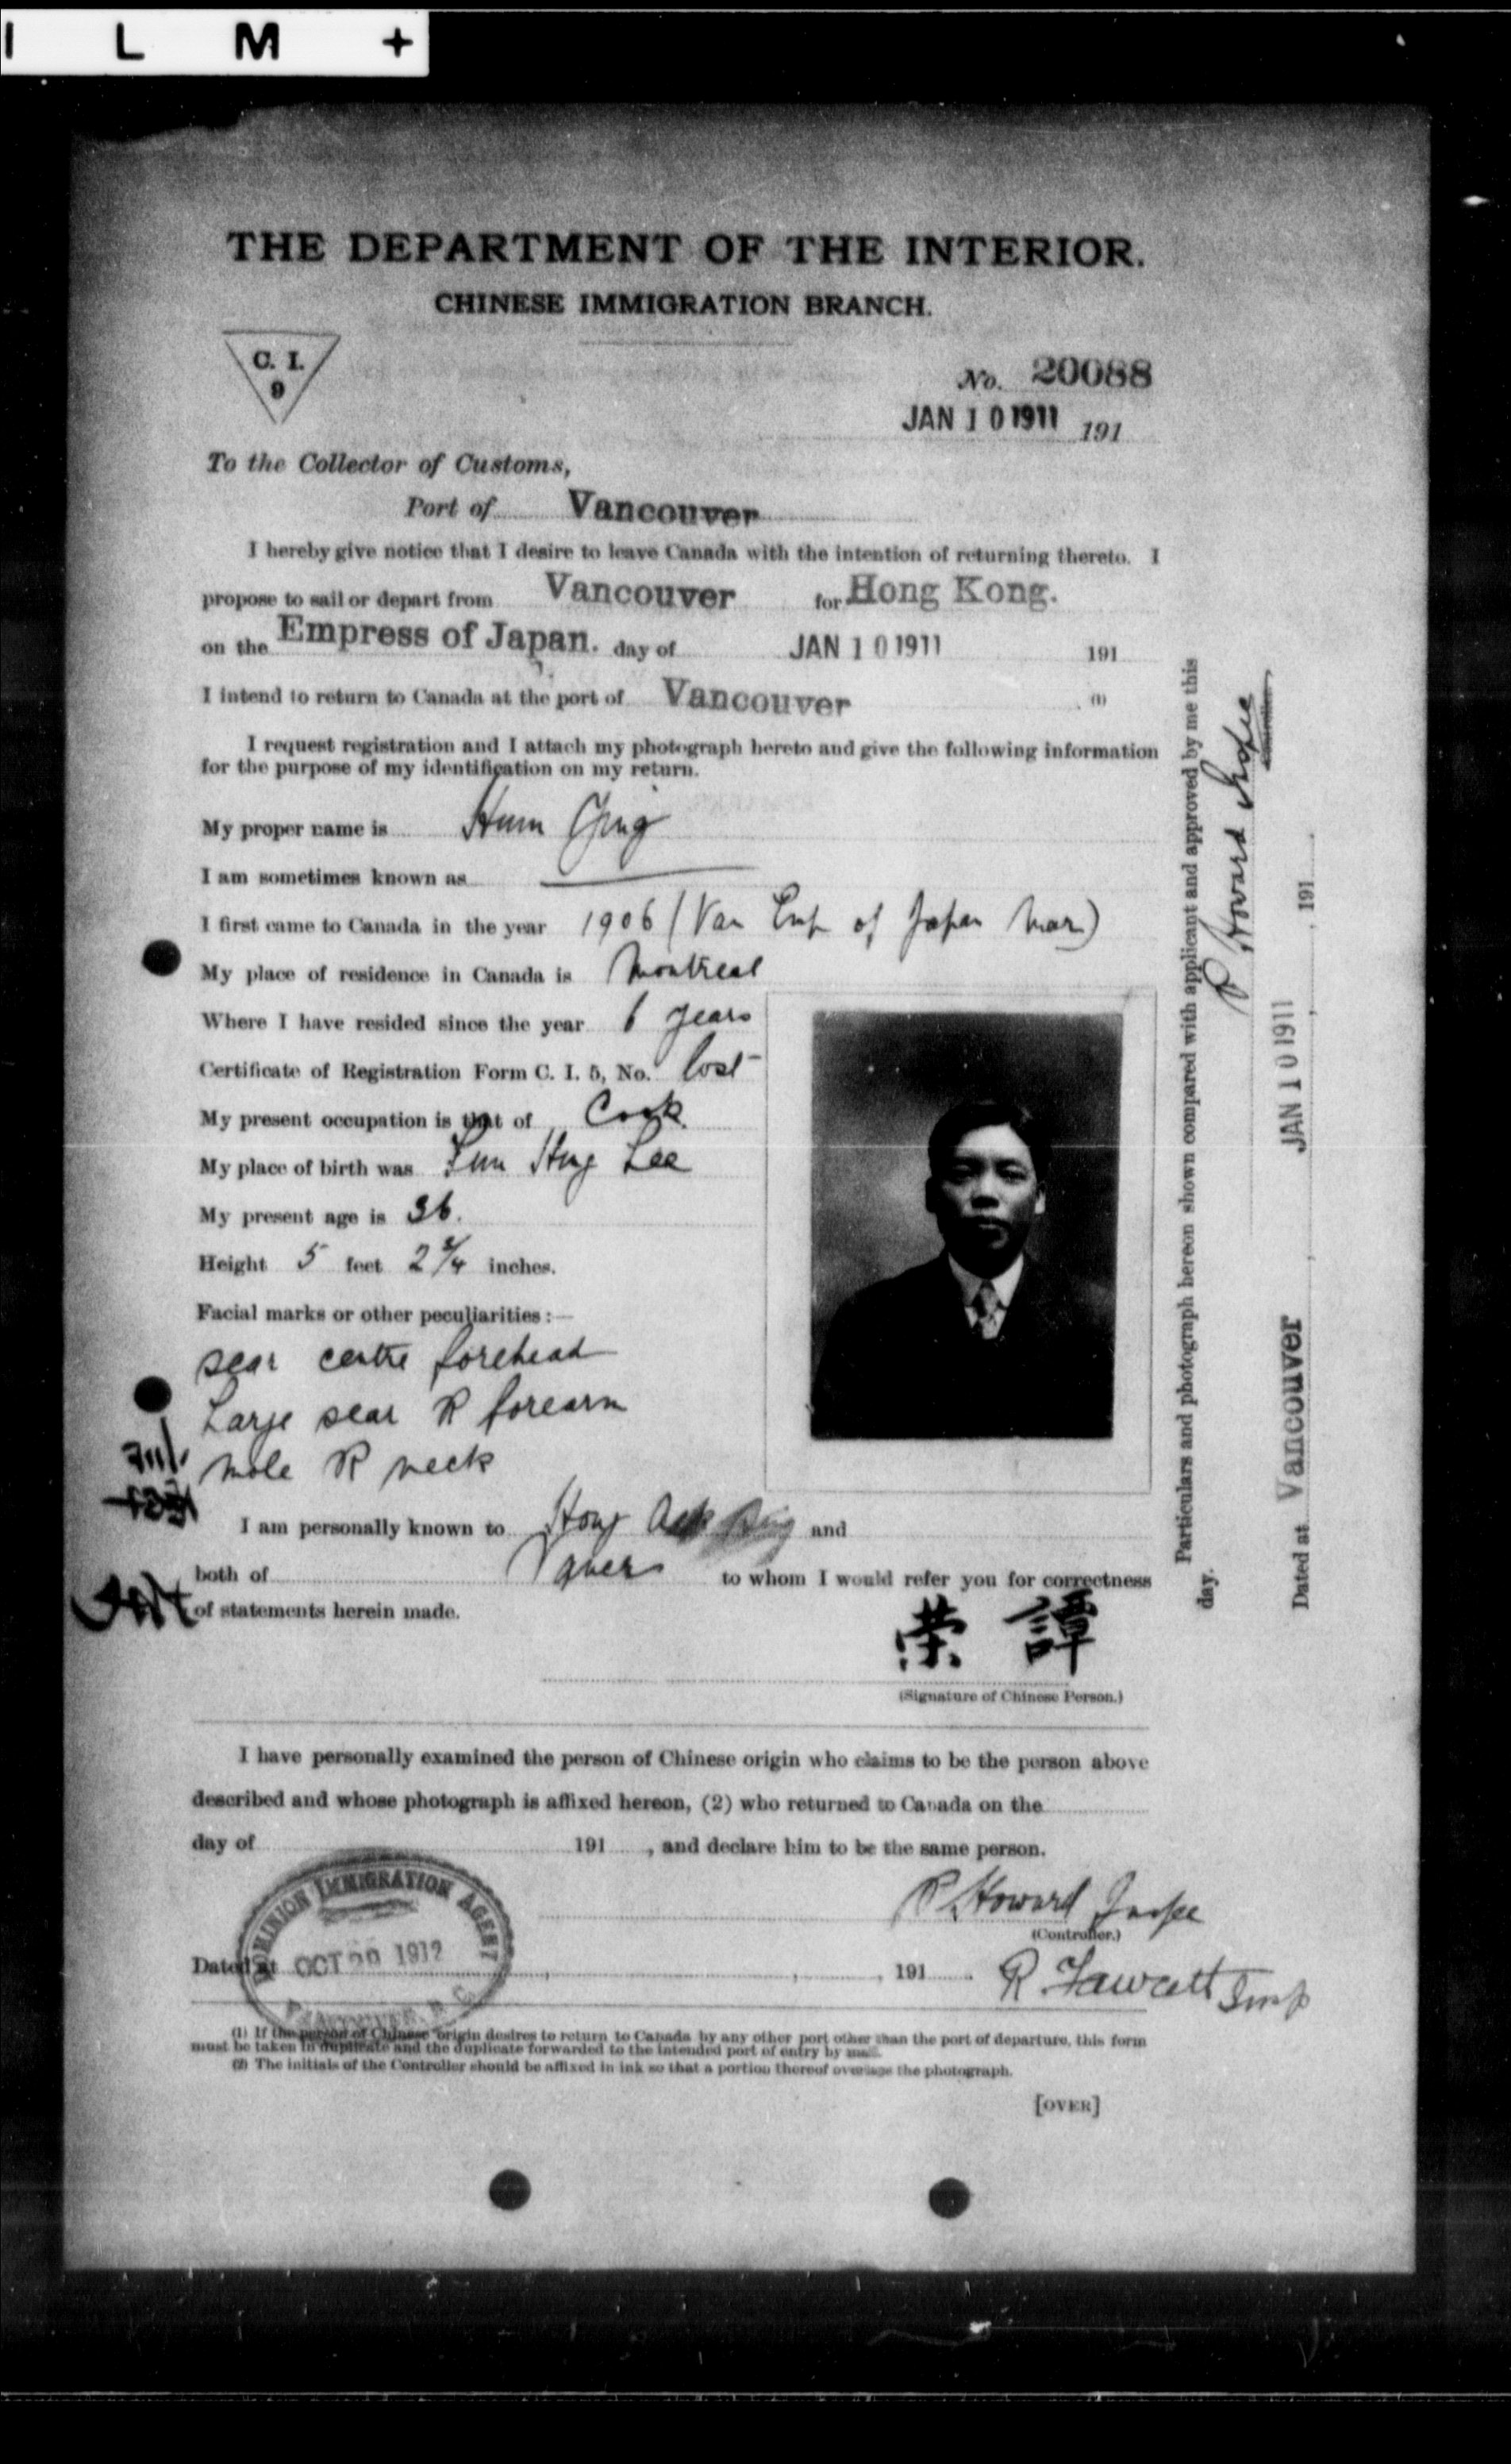 I L M +
THE DEPARTMENT OF THE INTERIOR.
CHINESE IMMIGRATION BRANCH.
C. I.
9
No. 20088
JAN 10 1911 191
To the Collector of Customs,
Port of Vancouver
I hereby give notice that I desire to leave Canada with the intention of returning thereto. I
propose to sail or depart from Vancouver for Hong Kong.
on the Empress of Japan. day of JAN 10 1911 191
I intend to return to Canada at the port of Vancouver (1)
I request registration and I attach my photograph hereto and give the following information
for the purpose of my identification on my return.
My proper name is Hum
I am sometimes known as
I first came to Canada in the year 1906 (Van Emp of Japan Mar)
My place of residence in Canada is Montreal
Where I have resided since the year 6 years
Certificate of Registration Form C. I. 5, No. lost
My present occupation is that of Cook.
My place of birth was Sun Hing Lee
My present age is 36.
Height 5 feet 2 3/4 inches.
Facial marks or other peculiarities:—
scar centre forehead
Large scar R forearm
mole R neck
I am personally known to Hong and
both of Vancr to whom I would refer you for correctness
of statements herein made.
荣 譚
(Signature of Chinese Person.)
I have personally examined the person of Chinese origin who claims to be the person above
described and whose photograph is affixed hereon, (2) who returned to Canada on the
day of 191 , and declare him to be the same person.
P. Howard Inspe
(Controller.)
DOMINION IMMIGRATION AGENT
OCT 29 1912
VANCOUVER, B. C.
Dated at , , 191 . R. Fawcett Insp
(1) If the person of Chinese origin desires to return to Canada by any other port other than the port of departure, this form
must be taken in duplicate and the duplicate forwarded to the intended port of entry by mail.
(2) The initials of the Controller should be affixed in ink so that a portion thereof overlaps the photograph.
[OVER]
Particulars and photograph hereon shown compared with applicant and approved by me this
day.
P Howard Inspe
Controller.
Dated at Vancouver , JAN 10 1911 , 191